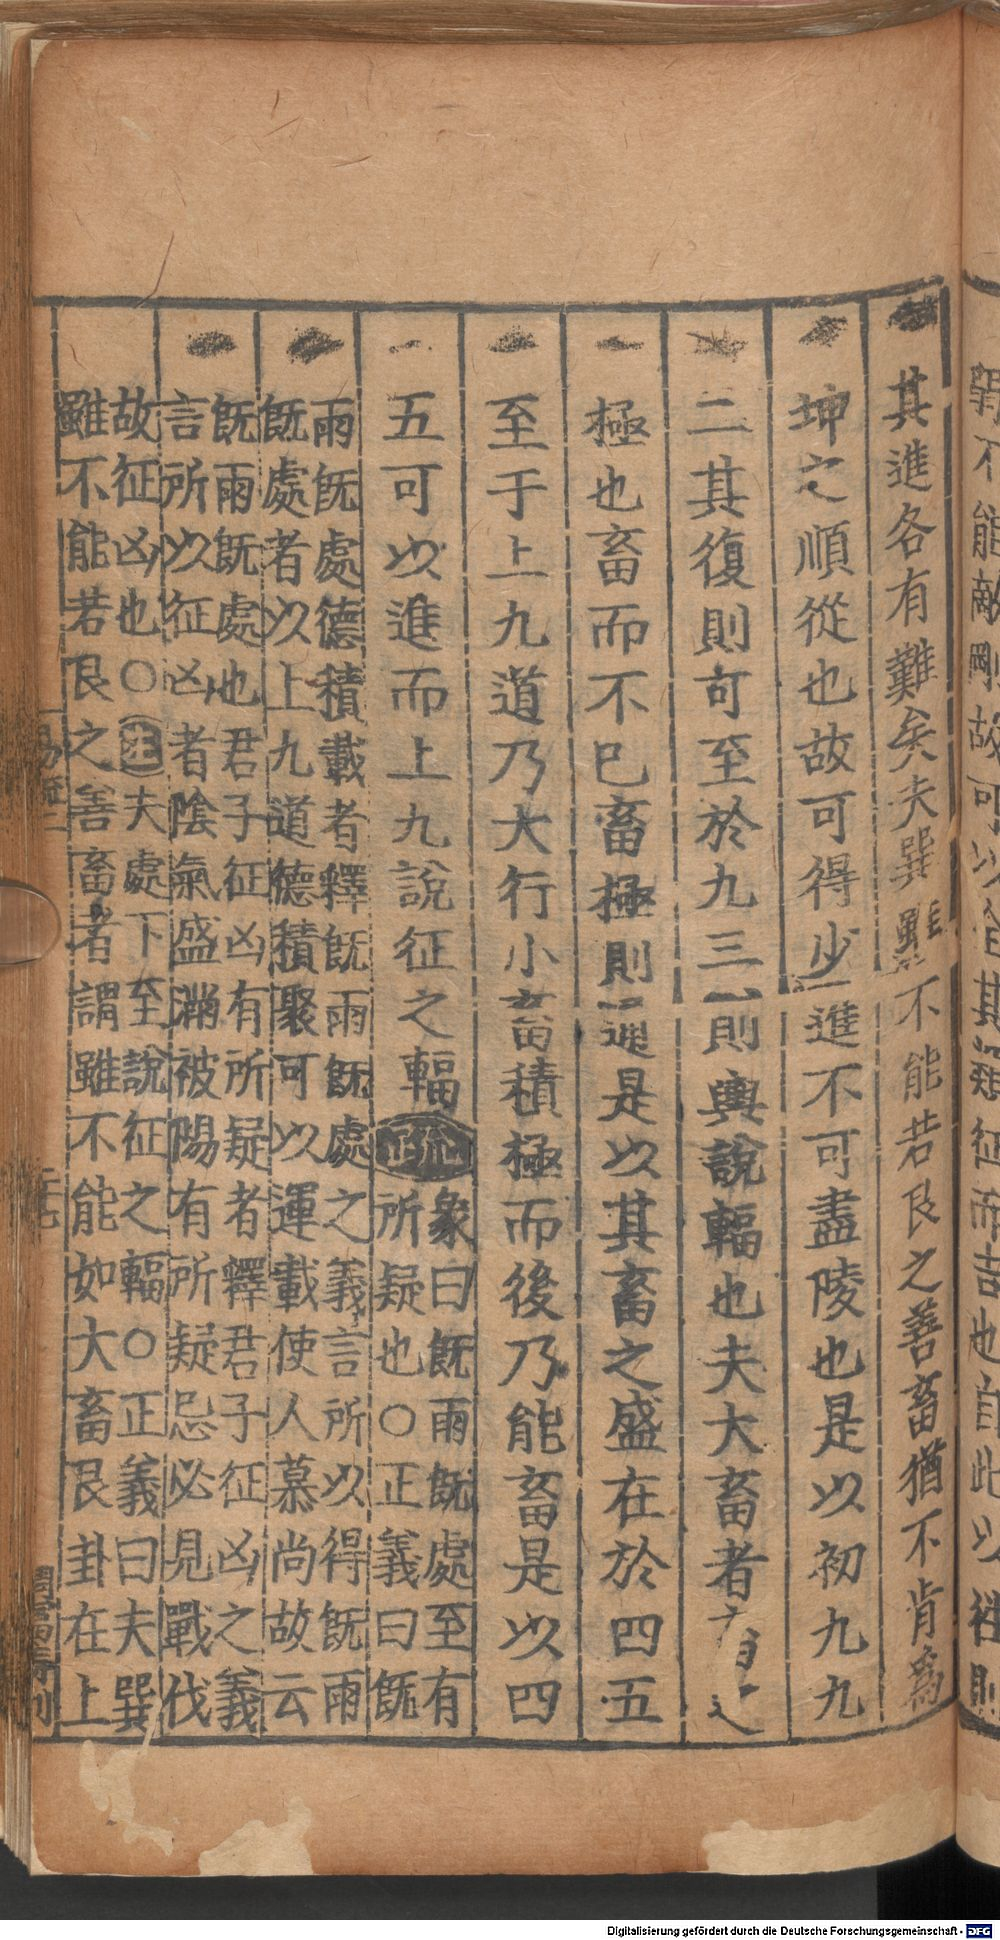 其進各有難矣夫巽雖不能若艮之善畜猶不肯爲
坤之順從也故可得少進不可盡陵也是以初九九
二其復則可至於九三則輿說輻也夫大畜者畜之
極也畜而不已畜極則通是以其畜之盛在於四五
至于上九道乃大行小畜積極而後乃能畜是以四
五可以進而上九說征之輻疏
象曰旣雨旣處至有
所疑也○正義曰旣
雨旣處德積載者釋旣雨旣處之義言所以得旣雨
旣處者以上九道德積聚可以運載使人慕尚故云
旣雨旣處也君子征凶有所疑者釋君子征凶之義
言所以征凶者陰氣盛滿被陽有所疑忌必見戰伐
故征凶也○注夫處下至說征之輻○正義曰夫巽
雖不能若艮之善畜者謂雖不能如大畜艮卦在上
易疏二
二十七
Digitalisierung gefördert durch die Deutsche Forschungsgemeinschaft - DFG